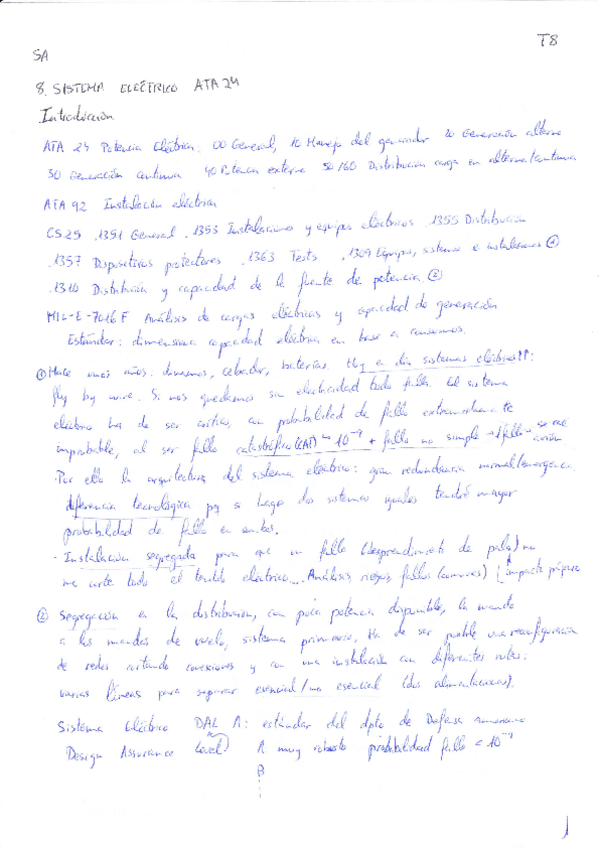 T8
SA
8. SISTEMA ELÉCTRICO ATA 24
Introducción
ATA 24 Potencia Eléctrica: 00 General, 10 Manejo del generador 20 Generación alterna
30 Generación continua 40 Potencia externa 50/60 Distribución carga en alterna/continua
ATA 92 Instalación eléctrica
CS25 .1351 General .1353 Instalaciones y equipos eléctricos .1355 Distribución
.1357 Dispositivos protectores .1363 Tests .1309 Equipos, sistemas e instalaciones ①
.1310 Distribución y capacidad de la fuente de potencia ②
MIL-E-7016F Análisis de cargas eléctricas y capacidad de generación
Estándar: dimensiona capacidad eléctrica en base a consumos.
① Hace unos años: dinamos, cebador, baterías. Hoy en día sistemas eléctricos!!:
fly by wire. Si nos quedamos sin electricidad todo falla. El sistema
eléctrico ha de ser crítico, con probabilidad de fallo extremadamente
improbable, al ser fallo catastrófico (CAT) ~ 10⁻⁹ + fallo no simple → 1 fallo
· Por ello la arquitectura del sistema eléctrico: gran redundancia normal/emergencia
diferencia tecnológica pq si hago dos sistemas iguales tendré mayor
probabilidad de fallo en ambos.
- Instalación segregada para que un fallo (desprendimiento de pala) no
me corte todo el tendido eléctrico... Análisis riesgos fallos (comunes) impacto pájaro
② Segregación en la distribución, con poca potencia disponible, la mando
a los mandos de vuelo, sistema primario. Ha de ser posible una reconfiguración
de redes cortando conexiones y con una instalación con diferentes rutas:
varias líneas para separar esencial/no esencial (dos alimentaciones).
Sistema Eléctrico DAL A: estándar del dpto de Defensa americano
Design Assurance Level A muy robusto probabilidad fallo < 10⁻⁹
B
1